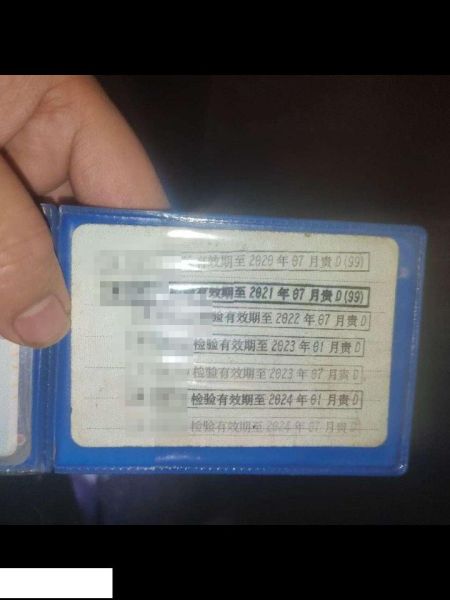 验有效期至2020年07月贵D(99)
验有效期至2021年07月贵D(99)
验有效期至2022年07月贵D
检验有效期至2023年01月贵D
检验有效期至2023年07月贵D
检验有效期至2024年01月贵D
检验有效期至2024年07月贵D